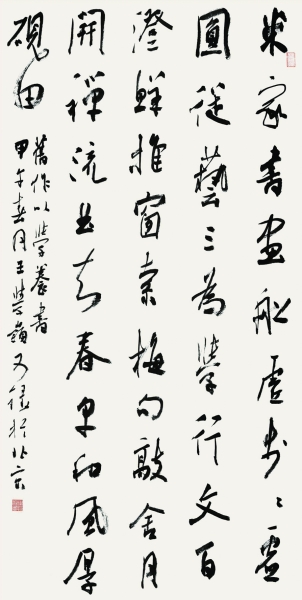 米家書画船虛步〻靈
圓從藝三為學行文百
澄鮮推窗索梅句敲舍月
開禪流出知春早和風厚
硯田
舊作以學養書
甲午春月王學嶺又録於北京